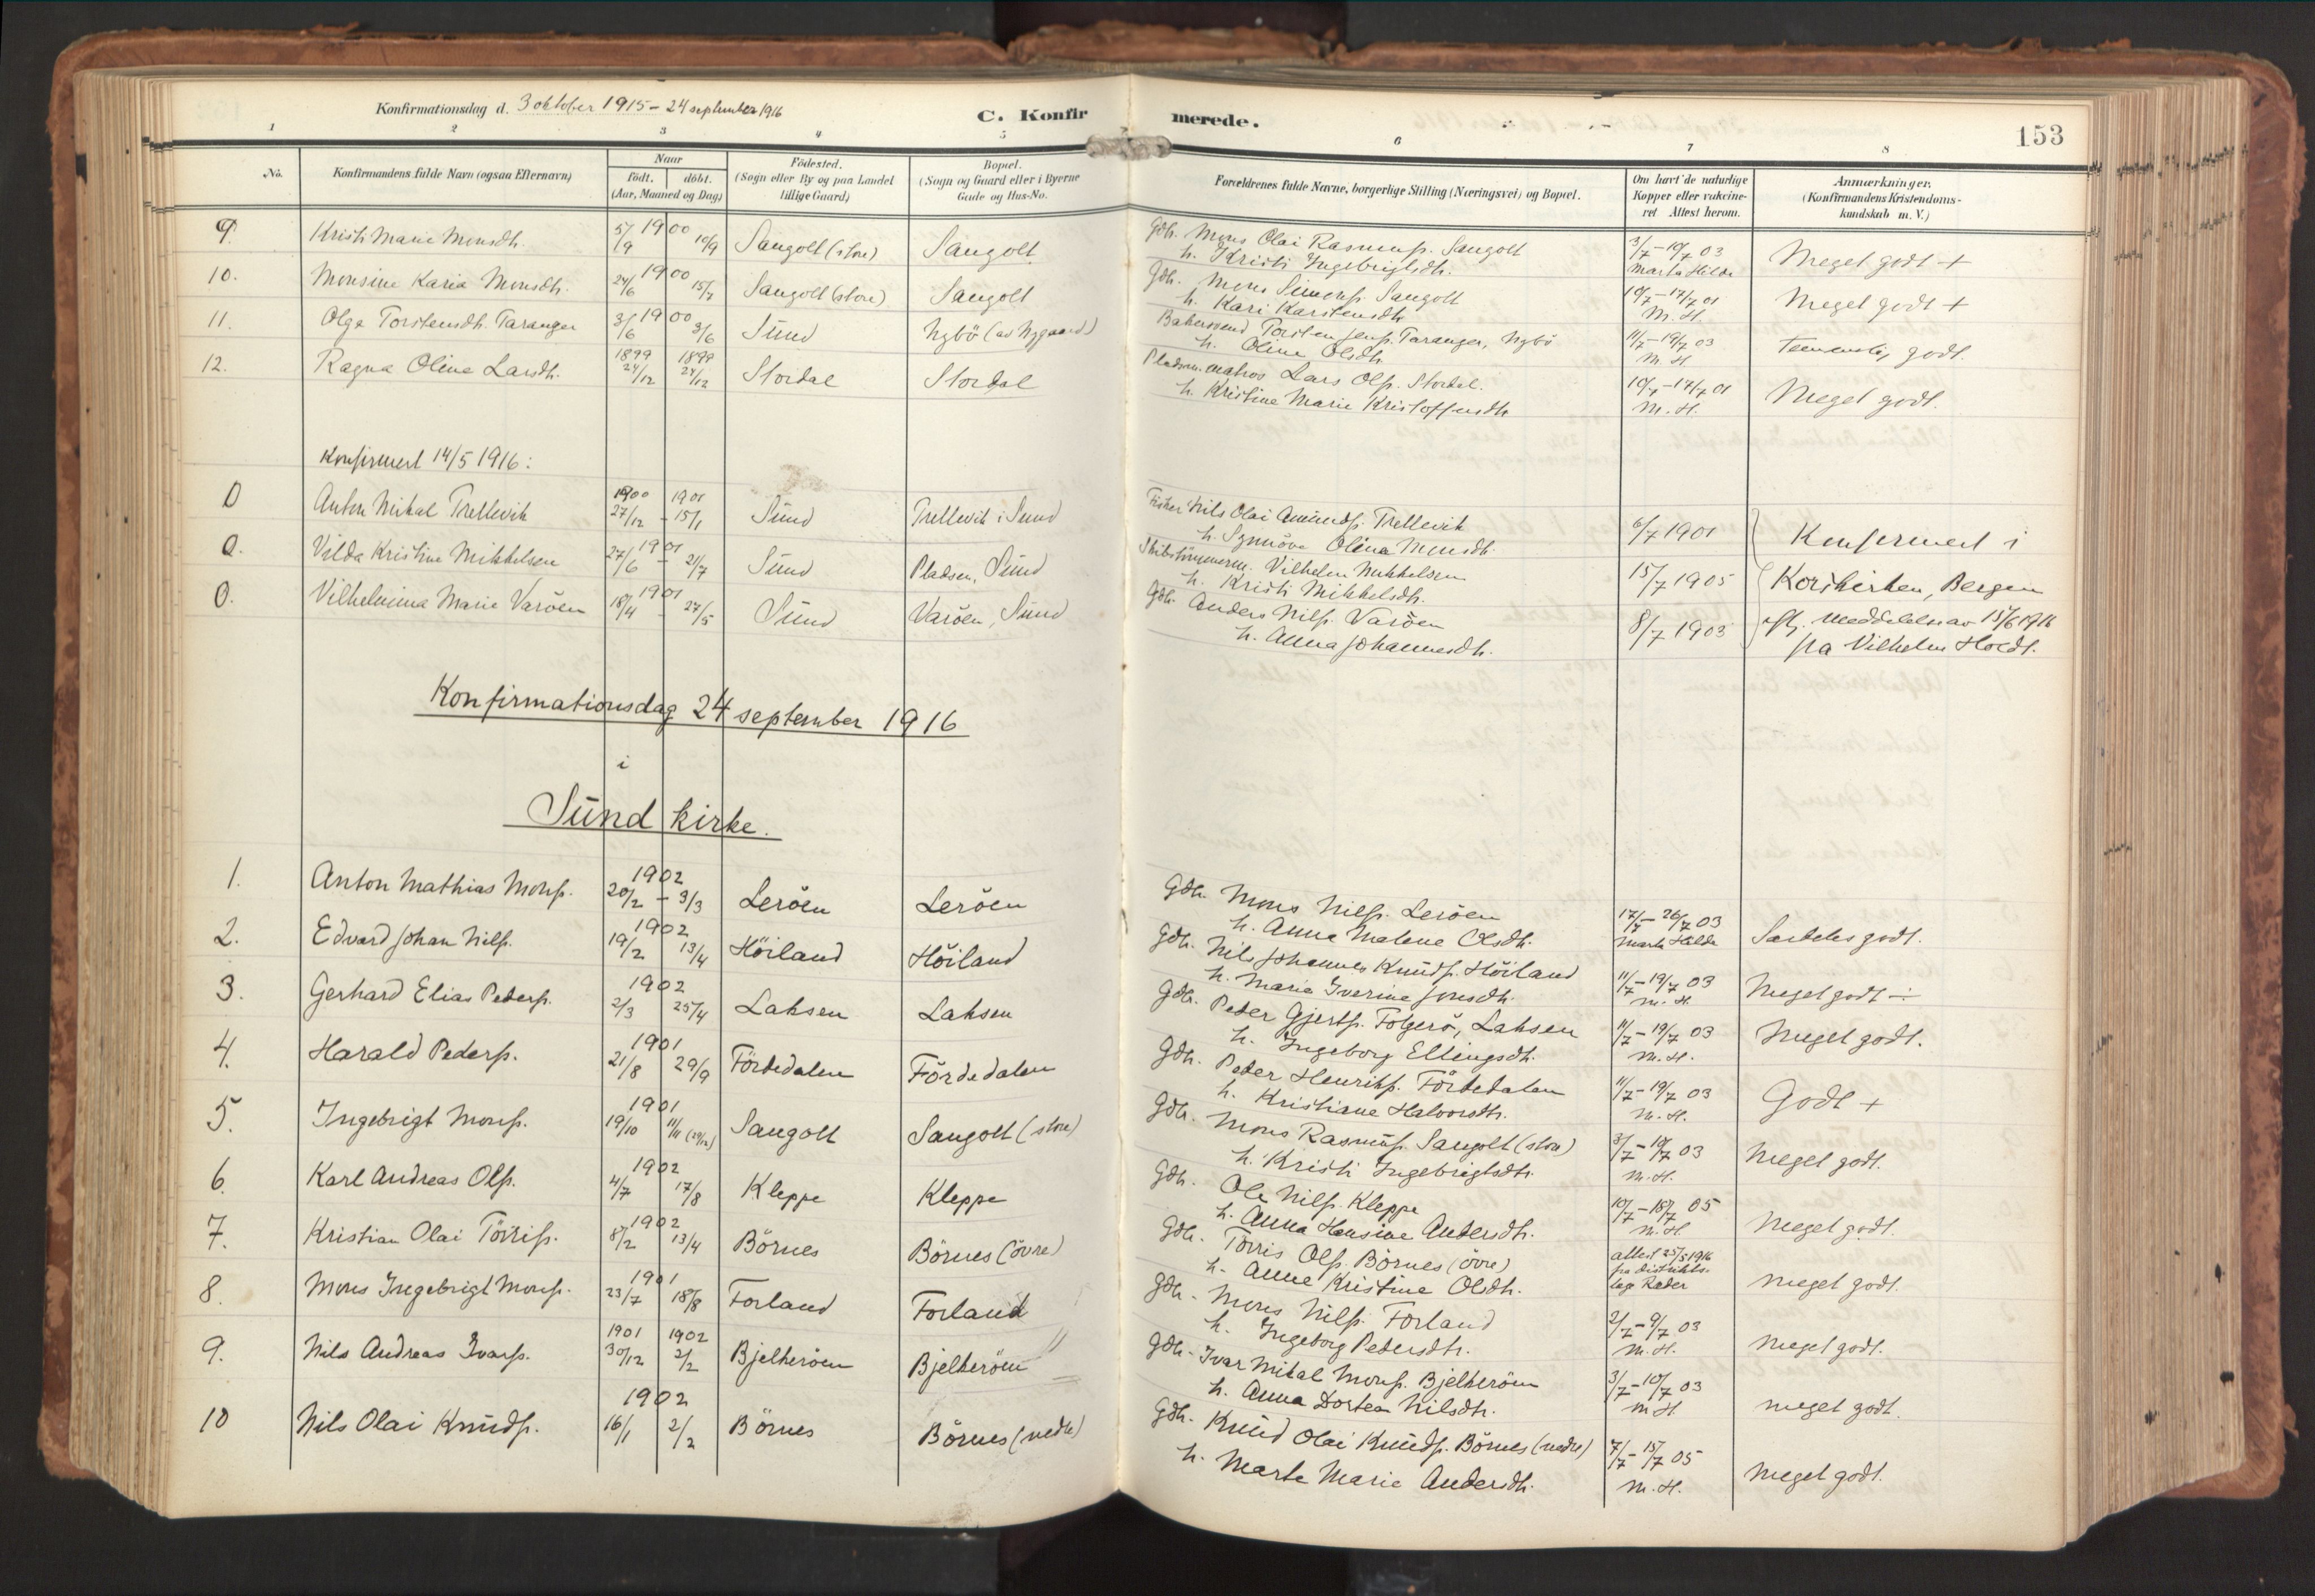 Konfirmationsdag d. 3 oktober 1915 – 24 september 1916
C. Konfirmerede.
153
1 2 3 4 5 6 7 8
No.
Konfirmandens fulde Navn (ogsaa Efternavn)
Naar
født. døbt.
(Aar, Maaned og Dag)
Fødested.
(Sogn eller By og paa Landet
tillige Gaard)
Bopæl.
(Sogn og Gaard eller i Byerne
Gade og Hus-No.
Forældrenes fulde Navne, borgerlige Stilling (Næringsvei) og Bopæl.
Om havt de naturlige
Kopper eller vakcine-
ret Attest herom.
Anmærkninger.
(Konfirmandens Kristendoms-
kundskab m. V.)
9. Kristi Marie Monsdtr. 1900 5/9 19/9 Sangolt (store) Sangolt Gdr. Mons Olai Rasmuss. Sangolt 3/7 – 10/7 03 Meget godt +
h. Kristi Ingebrigtsdtr. Marta Hilde
10. Monsine Karia Monsdtr. 1900 24/6 15/7 Sangolt (store) Sangolt Gdr. Mons Simons. Sangolt 10/7 – 17/7 01 Meget godt +
h. Kari Karstensdtr. M. H.
11. Olga Torstensdtr. Taranger 1900 3/6 3/6 Sund Nybö (av Nygaard) Torsten Jens. Taranger, Nybö 11/7 – 19/7 03 godt.
h. Oline Olsdtr. M. H.
12. Ragna Oline Larsdtr. 1899 24/12 1899 24/12 Stordal Stordal Pladsm. matros Lars Ols. Stordal. 10/7 – 17/7 01 Meget godt.
h. Kristine Marie Kristoffersdtr. M. H.
Konfirmert 14/5 1916:
0 Anton Mikal Trellevik 1900 27/12 – 1901 15/1 Sund Trellevik i Sund Fisker Nils Olai Amunds. Trellevik 6/7 1901 Konfirmert i
h. Synnöve Olina Monsdtr.
0. Vilda Kristine Mikkelsen 1901 27/6 – 21/7 Sund Pladsen, Sund Skibstömmerm. Vilhelm Mikkelsen 15/7 1905 Korskirken, Bergen
h. Kristi Mikkelsdtr.
0. Vilhelmina Marie Varöen 1901 18/4 – 27/5 Sund Varöen, Sund Gdr. Anders Nils. Varöen 8/7 1903 iflg. meddelelse av 15/6 1916
h. Anna Johannesdtr. fra Vilhelm Hordt.
Konfirmationsdag 24 september 1916
i
Sund kirke.
1. Anton Mathias Mons. 1902 20/2 – 3/3 Leröen Leröen Gdr. Mons Nils. Leröen 17/7 – 26/7 03 Særdeles godt.
h. Anna Malene Olsdtr. Marta Hilde
2. Edvard Johan Nils. 1902 19/2 13/4 Höiland Höiland Gdr. Nils Johannes Knuds. Höiland 11/7 – 19/7 03 Meget godt ÷
h. Marie Iverine Jonsdtr. M. H.
3. Gerhard Elias Peders. 1902 2/3 25/4 Laksen Laksen Gdr. Peder Gjerts. Tolgerö, Laksen 11/7 – 19/7 03 Meget godt.
h. Ingeborg Ellingsdtr. M. H.
4. Harald Peders. 1901 21/8 29/9 Fördedalen Fördedalen Gdr. Peder Henriks. Fördedalen 11/7 – 19/7 03 Godt +
h. Kristiane Halvorsdtr. M. H.
5. Ingebrigt Mons. 1901 19/10 11/11 (29/12) Sangolt Sangolt (store) Gdr. Mons Rasmus. Sangolt (store) 3/7 – 10/7 03 Meget godt.
h. Kristi Ingebrigtsdtr. M. H.
6. Karl Andreas Ols. 1902 4/7 17/8 Kleppe Kleppe Gdr. Ole Nils. Kleppe 10/7 – 18/7 05 Meget godt.
h. Anna Hansine Andersdtr. M. H.
7. Kristian Olai Törris. 1902 8/2 13/4 Börnes Börnes (övre) Gdr. Törris Ols. Börnes (övre) attest 25/5 1916 meget godt.
h. Anne Kristine Olsdtr. fra distrikts-
læge Ræder
8. Mons Ingebrigt Mons. 1901 23/7 18/8 Forland Forland Gdr. Mons Nils. Forland 2/7 – 9/7 03 meget godt.
h. Ingeborg Pedersdtr. M. H.
9. Nils Andreas Ivars. 1901 30/12 1902 2/2 Bjelkeröen Bjelkeröen Gdr. Ivar Mikal Mons. Bjelkeröen 3/7 – 10/7 03 meget godt.
h. Anna Dortea Nilsdtr. M. H.
10 Nils Olai Knuds. 1902 16/1 2/2 Börnes Börnes (nedre) Gdr. Knud Olai Knuds. Börnes (nedre) 7/7 – 15/7 05 meget godt.
h. Marta Marie Andersdtr. M. H.